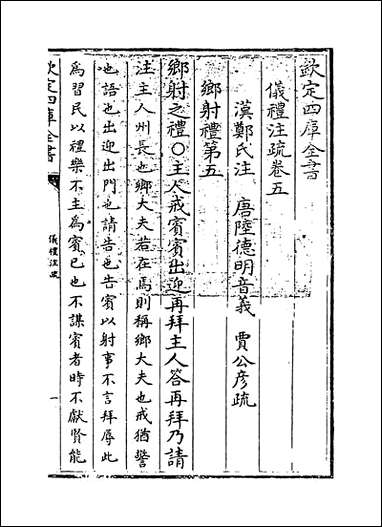 欽定四庫全書
儀禮注疏卷五
漢鄭氏注　唐陸德明音義　賈公彦疏
鄉射禮第五
鄉射之禮〇主人戒賓賓出迎再拜主人答再拜乃請
注主人州長也鄉大夫若在焉則稱鄉大夫也戒猶警
也語也出迎出門也請告也告賓以射事不言拜辱此
為習民以禮樂不主為賓己也不謀賓者時不獻賢能
欽定四庫全書
儀禮注疏
一